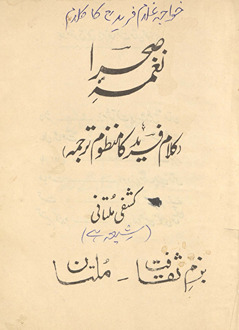 خواجہ غلام فرید کا کلام
نغمۂ صحرا
(کلامِ فرید کا منظوم ترجمہ)
کشفی ملتانی
(شیعہ ہے)
بزمِ ثقافت - ملتان